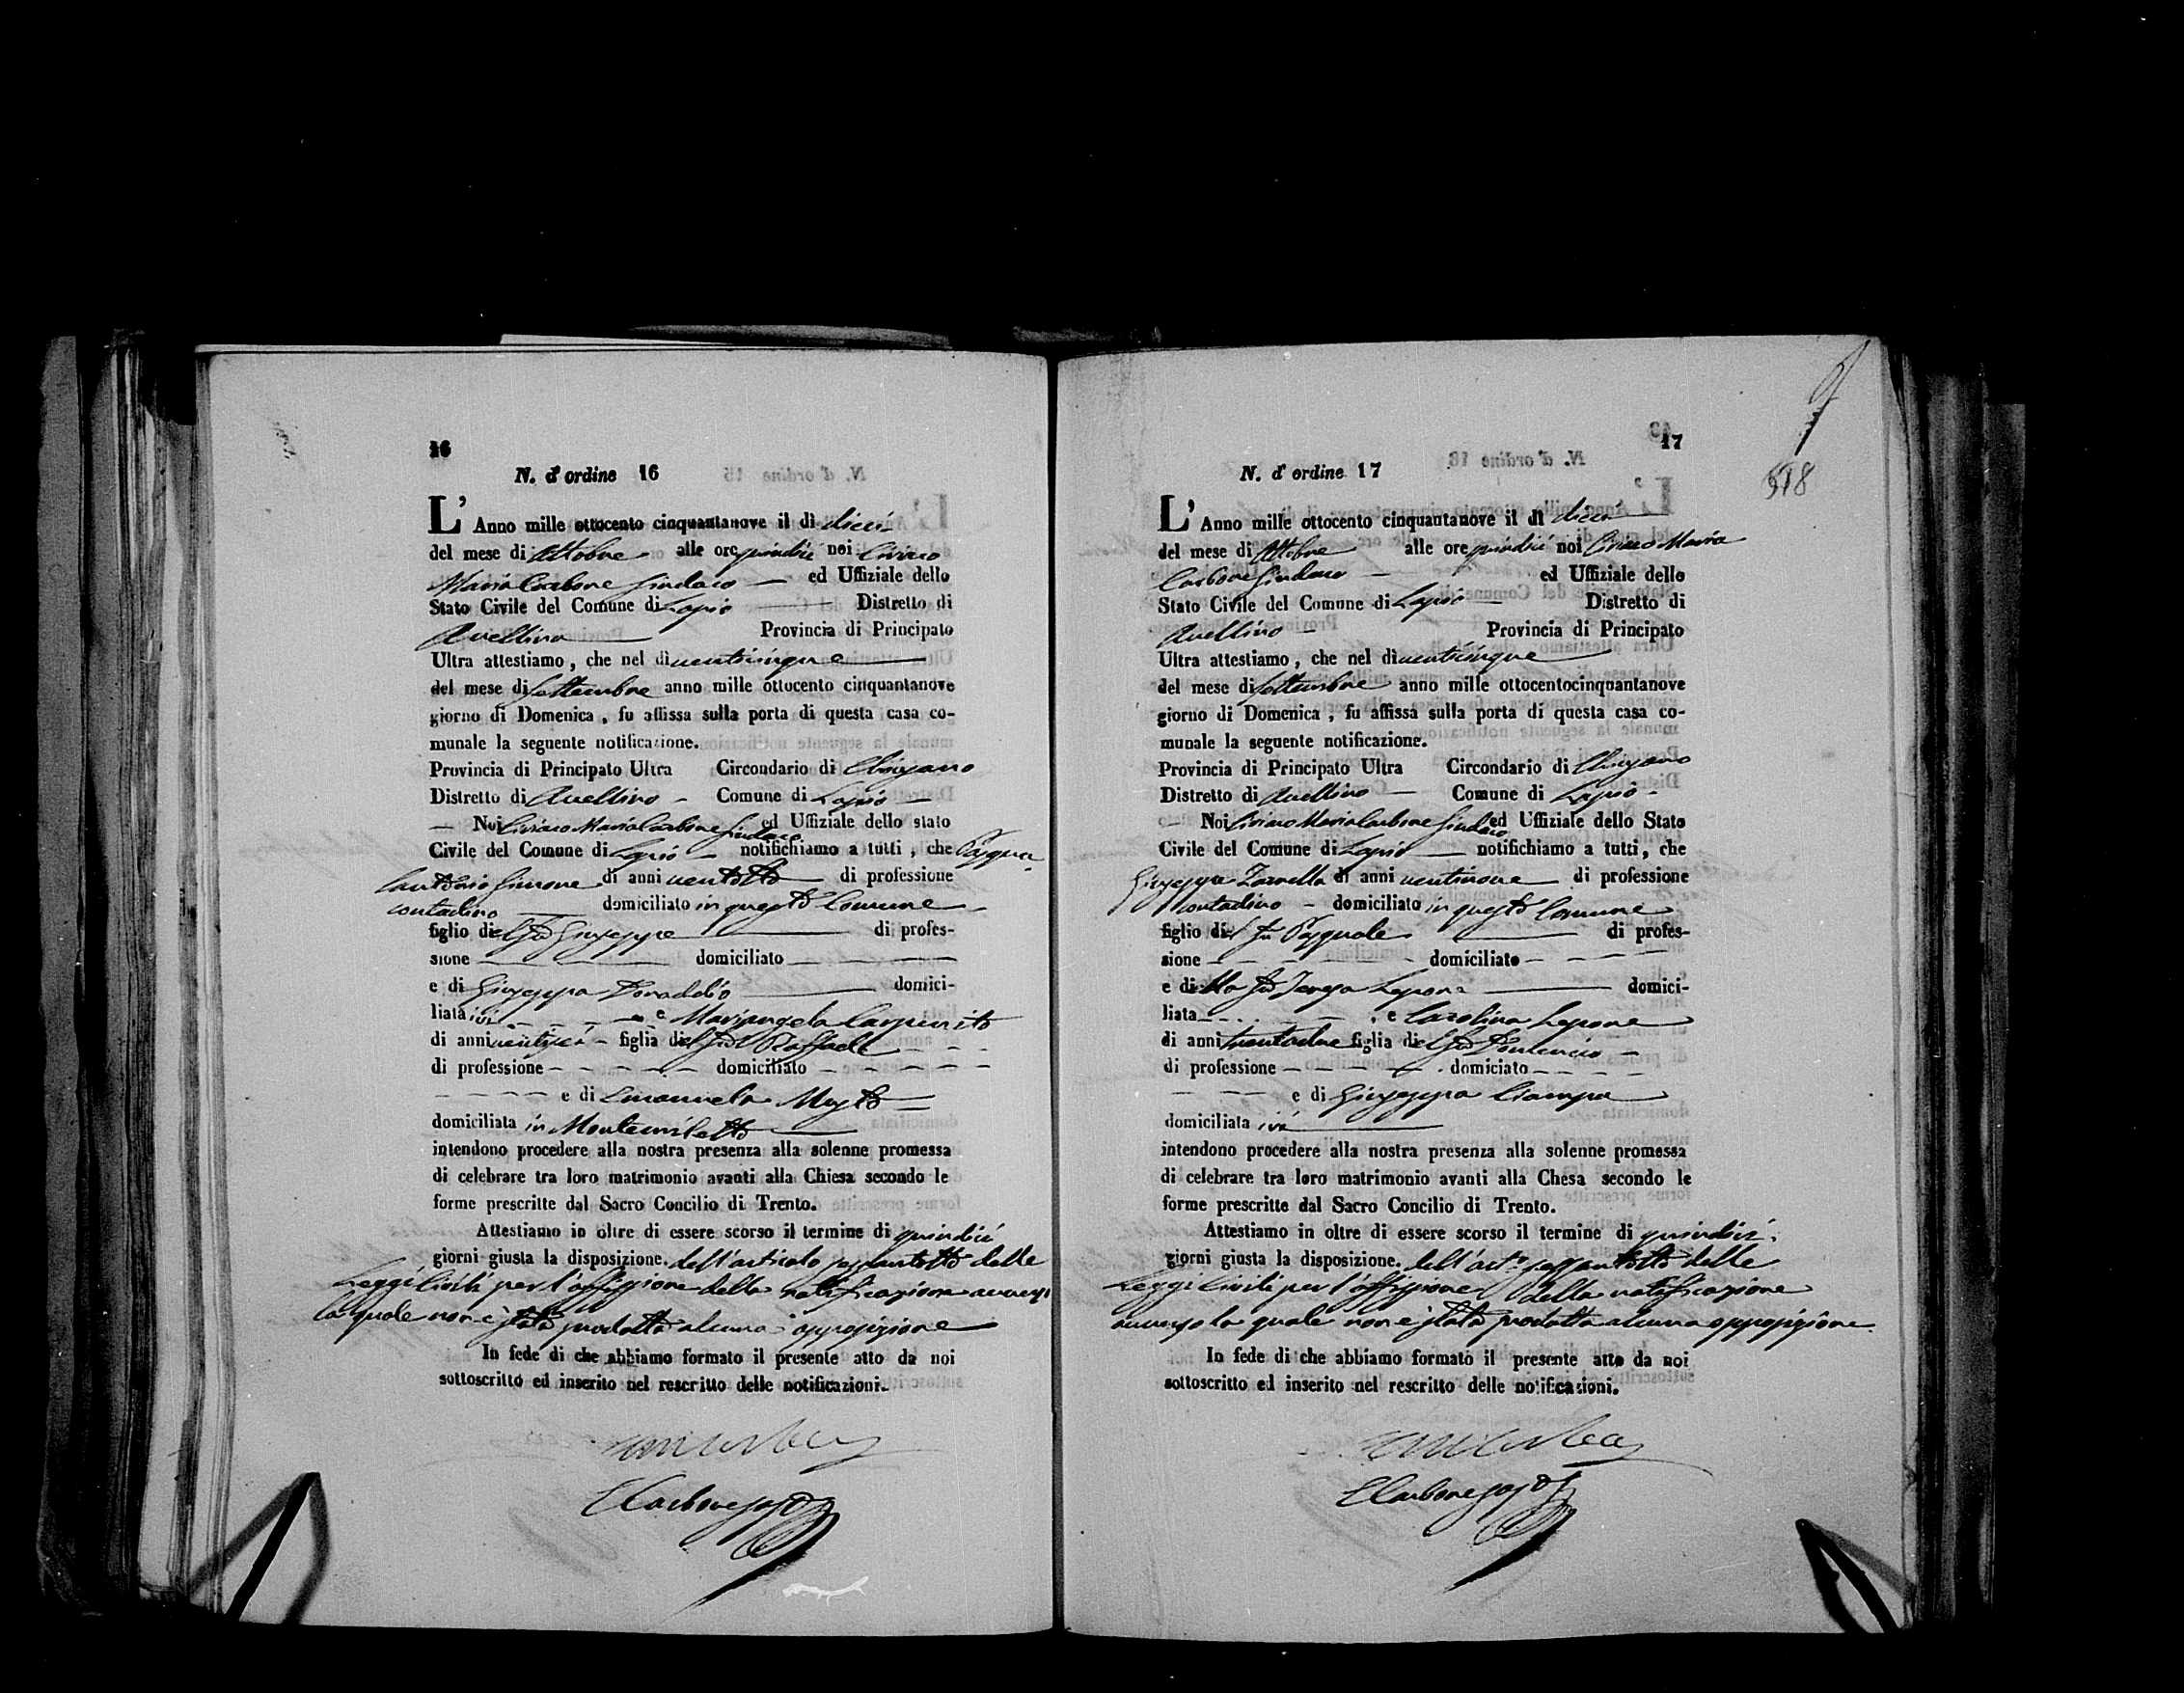 16
N. d' ordine 16
L' Anno mille ottocento cinquantanove il dì dieci
del mese di Ottobre alle ore quindici noi Ciriaco
Maria Carbone Sindaco ed Uffiziale dello
Stato Civile del Comune di Lapio Distretto di
Avellino Provincia di Principato
Ultra attestiamo, che nel dì venticinque
del mese di Settembre anno mille ottocento cinquantanove
giorno di Domenica, fu affissa sulla porta di questa casa co-
munale la seguente notificazione.
Provincia di Principato Ultra Circondario di Chiusano
Distretto di Avellino Comune di Lapio
Noi Ciriaco Maria Carbone Sindaco ed Uffiziale dello stato
Civile del Comune di Lapio notifichiamo a tutti, che Pasqua-
lantonio Simone di anni ventotto di professione
contadino domiciliato in questo Comune
figlio del fu Giuseppe di profes-
sione domiciliato
e di Giuseppa Donaddio domici-
liata ivi e Mariangela Carpenito
di anni ventisei figlia del fu Raffaele
di professione domiciliato
e di Emanuela Musto
domiciliata in Montemiletto
intendono procedere alla nostra presenza alla solenne promessa
di celebrare tra loro matrimonio avanti alla Chiesa secondo le
forme prescritte dal Sacro Concilio di Trento.
Attestiamo in oltre di essere scorso il termine di quindici
giorni giusta la disposizione. dell'articolo sessantotto delle
Leggi Civili per l'affissione della notificazione avverso
la quale non è stata prodotta alcuna opposizione
In fede di che abbiamo formato il presente atto da noi
sottoscritto ed inserito nel rescritto delle notificazioni.
17
518
N. d' ordine 17
L' Anno mille ottocento cinquantanove il dì dieci
del mese di Ottobre alle ore quindici noi Ciriaco Maria
Carbone Sindaco ed Uffiziale dello
Stato Civile del Comune di Lapio Distretto di
Avellino Provincia di Principato
Ultra attestiamo, che nel dì venticinque
del mese di Settembre anno mille ottocentocinquantanove
giorno di Domenica, fu affissa sulla porta di questa casa co-
munale la seguente notificazione.
Provincia di Principato Ultra Circondario di Chiusano
Distretto di Avellino Comune di Lapio
Noi Ciriaco Maria Carbone Sindaco ed Uffiziale dello Stato
Civile del Comune di Lapio notifichiamo a tutti, che
Giuseppe Zarrella di anni ventinove di professione
contadino domiciliato in questo Comune
figlio del fu Pasquale di profes-
sione domiciliato
e della fu Teresa Lepore domici-
liata e Carolina Lepore
di anni trentadue figlia del fu Domenico
di professione domiciato
e di Giuseppa Ciampa
domiciliata ivi
intendono procedere alla nostra presenza alla solenne promessa
di celebrare tra loro matrimonio avanti alla Chesa secondo le
forme prescritte dal Sacro Concilio di Trento.
Attestiamo in oltre di essere scorso il termine di quindici
giorni giusta la disposizione. dell'art.º sessantotto delle
Leggi Civili per l'affissione della notificazione
avverso la quale non è stata prodotta alcuna opposizione.
In fede di che abbiamo formato il presente atto da noi
sottoscritto ed inserito nel rescritto delle notificazioni.